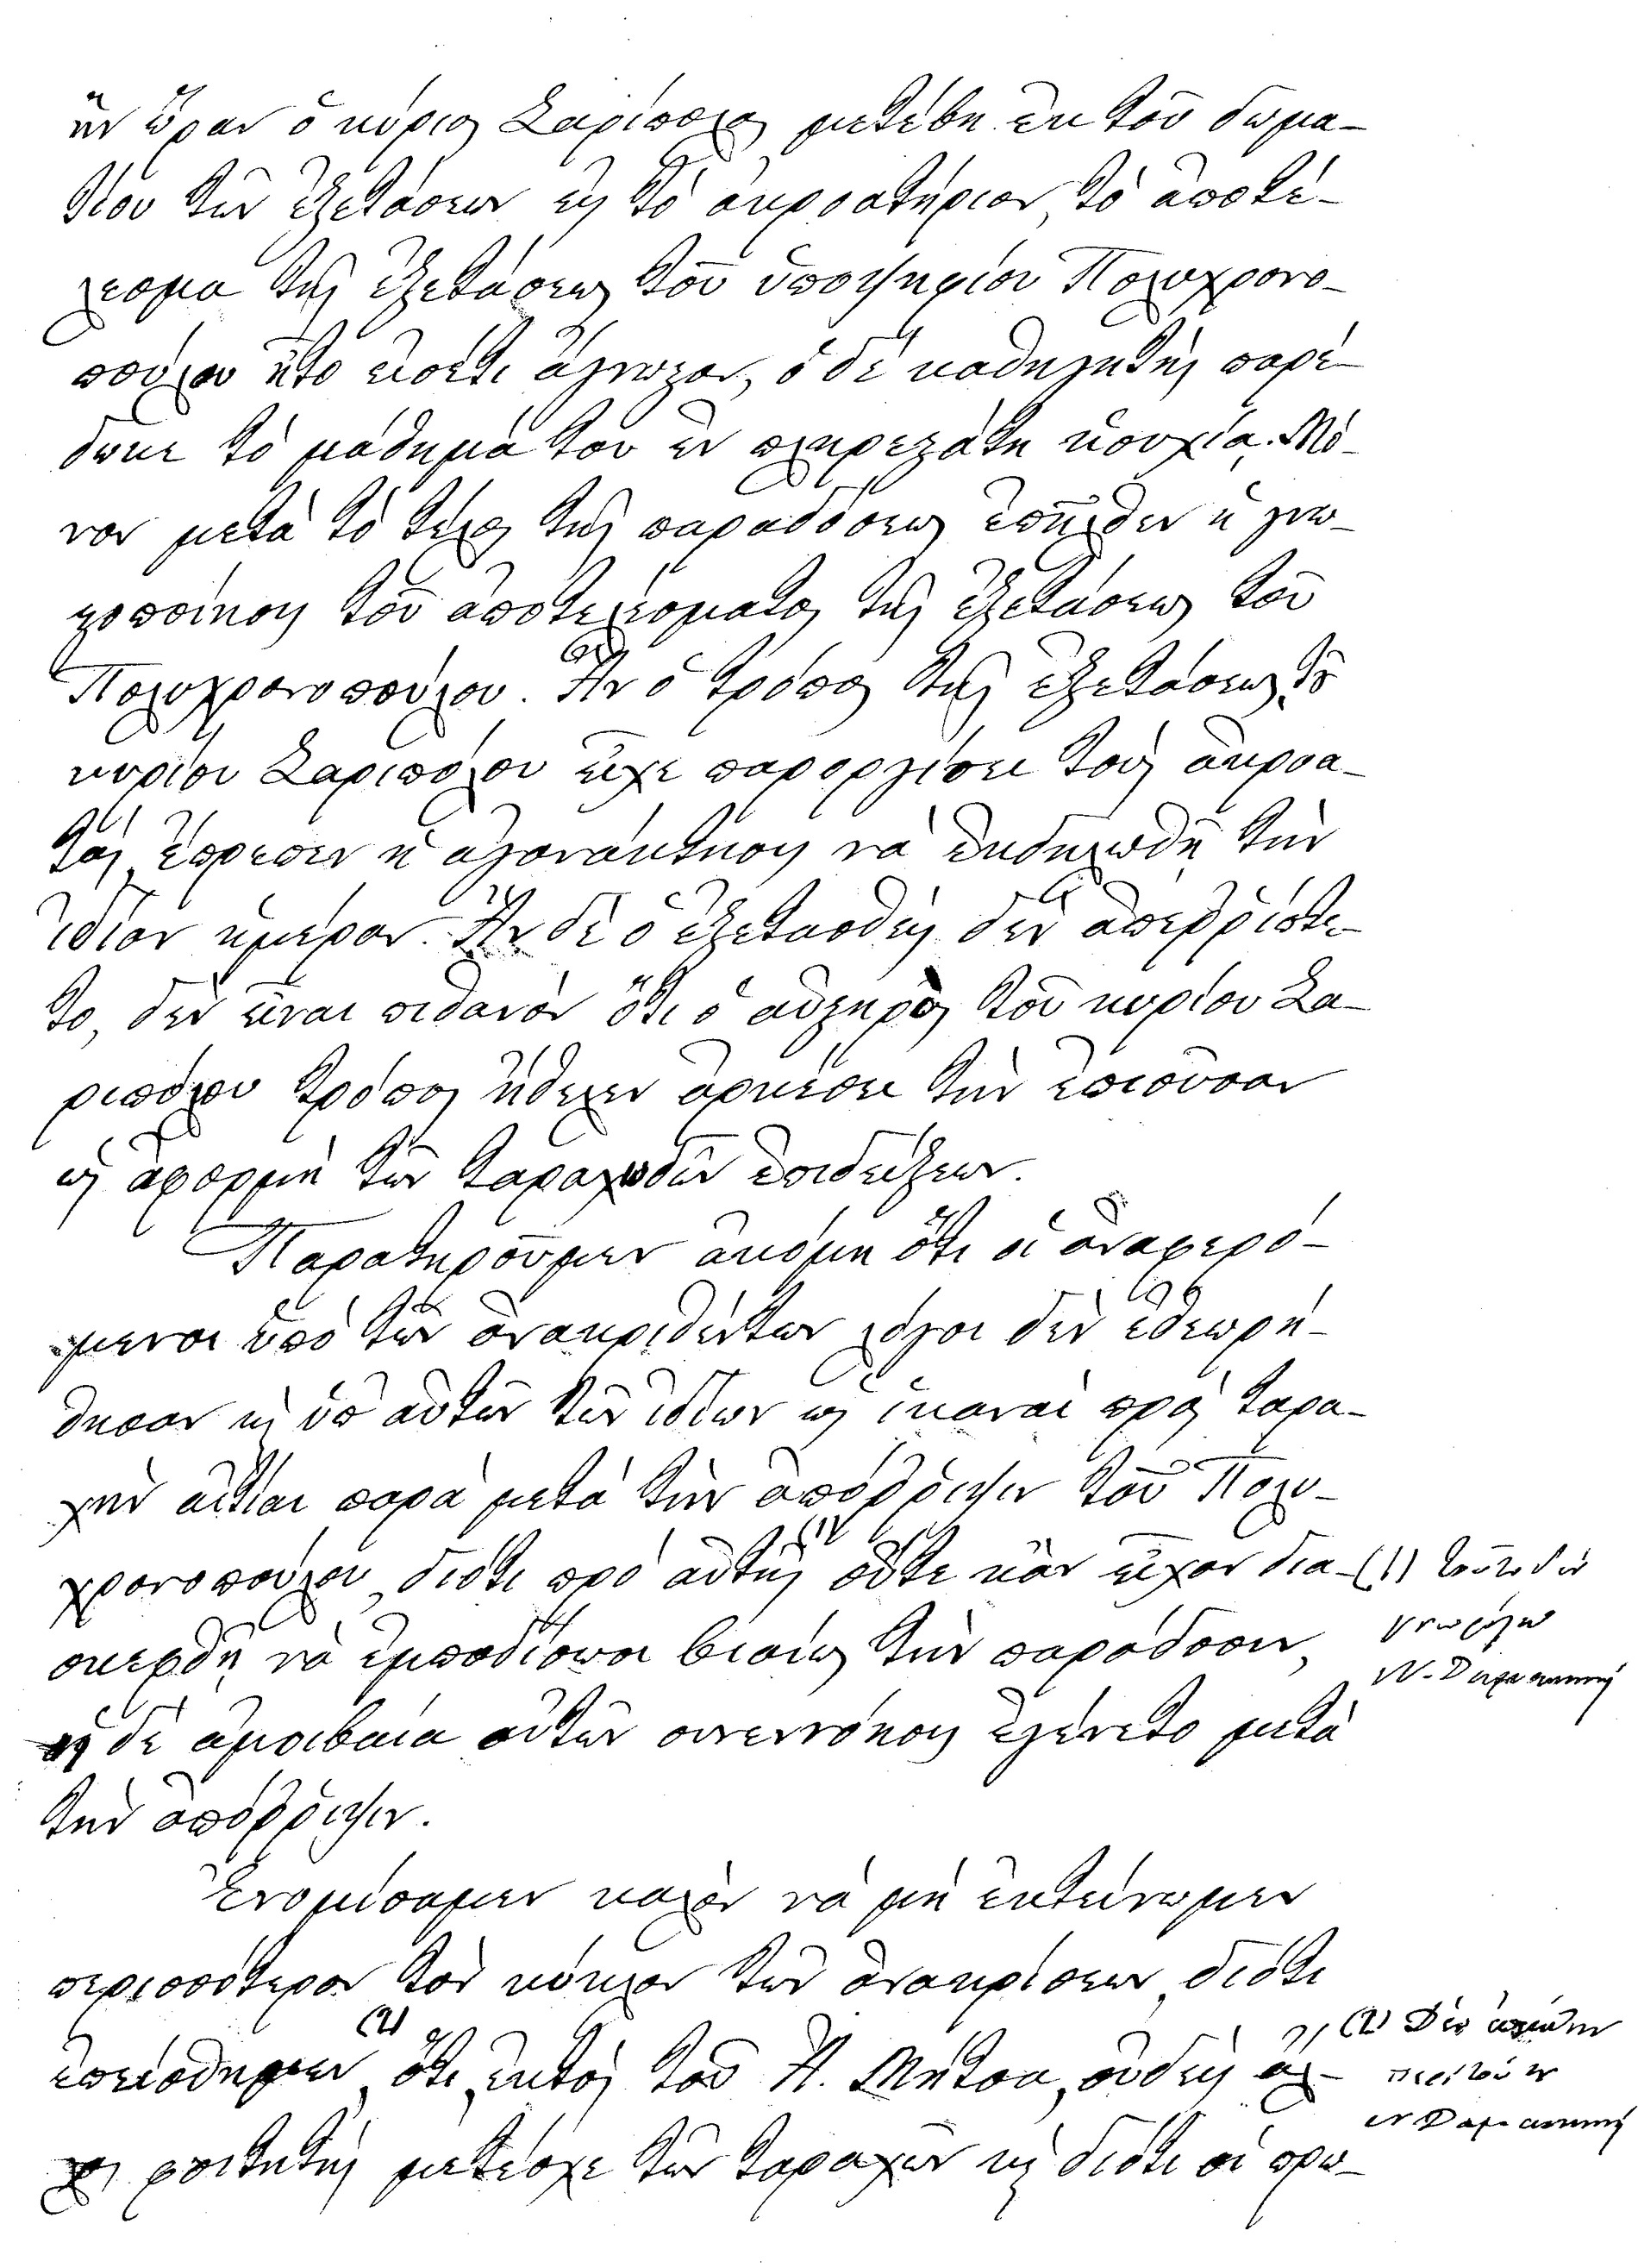 ἣν ὥραν ὁ κύριος Σαρίπολος μετέβη ἐκ τοῦ δωμα-
τίου τῶν ἐξετάσεων εἰς τὸ ἀκροατήριον, τὸ ἀποτέ-
λεσμα τῆς ἐξετάσεως τοῦ ὑποψηφίου Πολυχρονο-
πούλου ἦτο εἰσέτι ἄγνωστον, ὁ δὲ καθηγητὴς παρέ-
δωκε τὸ μάθημά του ἐν πληρεστάτῃ ἡσυχίᾳ. Μό-
νον μετὰ τὸ τέλος τῆς παραδόσεως ἐπῆλθεν ἡ γνω-
στοποίησις τοῦ ἀποτελέσματος τῆς ἐξετάσεως τοῦ
Πολυχρονοπούλου. Ἂν ὁ τρόπος τῆς ἐξετάσεως τοῦ
κυρίου Σαριπόλου εἶχε παροργίσει τοὺς ἀκροα-
τάς, ἔπρεπεν ἡ ἀγανάκτησις νὰ ἐκδηλωθῇ τὴν
ἰδίαν ἡμέραν. Ἂν δὲ ὁ ἐξετασθεὶς δὲν ἀπερρίπτε-
το, δὲν εἶναι πιθανὸν ὅτι ὁ αὐστηρὸς τοῦ κυρίου Σα-
ριπόλου τρόπος ἤθελεν ἀρκέσει τὴν ἐπιοῦσαν
ὡς ἀφορμὴ τῶν ταραχωδῶν ἐπιδείξεων.
Παρατηροῦμεν ἀκόμη ὅτι οἱ ἀναφερό-
μενοι ὑπὸ τῶν ἀνακριθέντων λόγοι δὲν ἐθεωρή-
θησαν καὶ ὑπ' αὐτῶν τῶν ἰδίων ὡς ἱκαναὶ πρὸς ταρα-
χὴν αἰτίαι παρὰ μετὰ τὴν ἀπόρριψιν τοῦ Πολυ-
χρονοπούλου, διότι πρὸ αὐτῆς (1) οὔτε κἂν εἶχον δια-
σκεφθῆ νὰ ἐμποδίσωσι βιαίως τὴν παράδοσιν,
ἡ δὲ ἀμοιβαία αὐτῶν συνεννόησις ἐγένετο μετὰ
τὴν ἀπόρριψιν.
(1) τοῦτο δὲν
γνωρίζω
Ν. Δαμασκηνὸς
Ἐνομίσαμεν καλὸν νὰ μὴ ἐκτείνωμεν
περισσότερον τὸν κύκλον τῶν ἀνακρίσεων, διότι
ἐπείσθημεν (2), ὅτι, ἐκτὸς τοῦ Ἀ. Μήτσα, οὐδεὶς ἄλ-
λος φοιτητὴς μετέσχε τῶν ταραχῶν καὶ διότι οἱ πρω-
(2) Δὲν ἐπείσθην
περὶ τούτου
Ν Δαμασκηνὸς